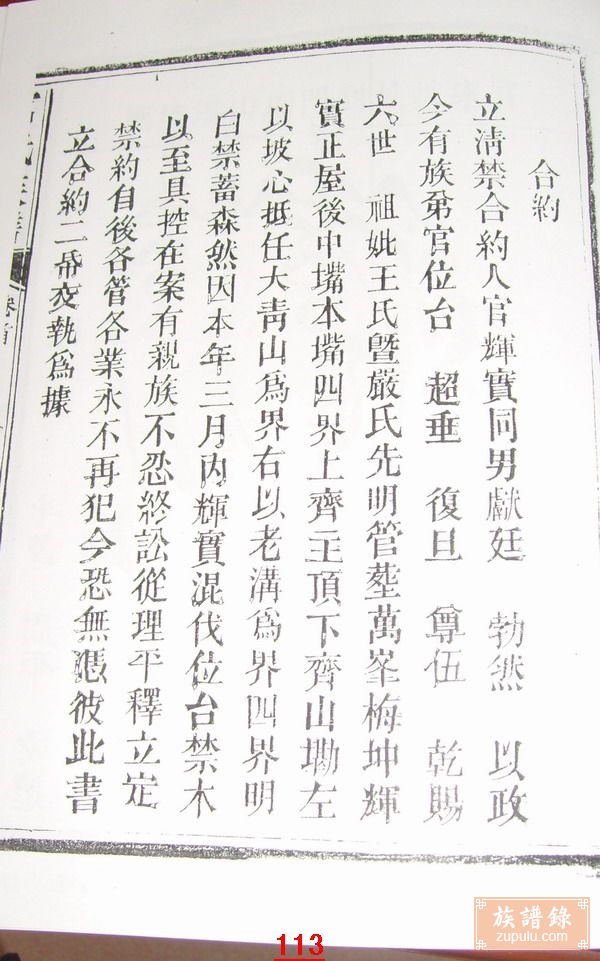 合約
立清禁合約人官輝實同男獻廷 勃然 以政
今有族弟官位台 超垂 復旦 尊伍 乾賜
六世 祖妣王氏暨嚴氏先明管塟萬峯梅坤輝
實正屋後中嘴本嘴四界上齊土頂下齊山墈左
以坡心抵任大青山為界右以老溝為界四界明
白禁蓄森然因本年三月內輝實混伐位台禁木
以至具控在案有親族不忍終訟從理平釋立定
禁約自後各管各業永不再犯今恐無憑彼此書
立合約二帋交執為據
卷首
113
族譜錄
zupulu.com